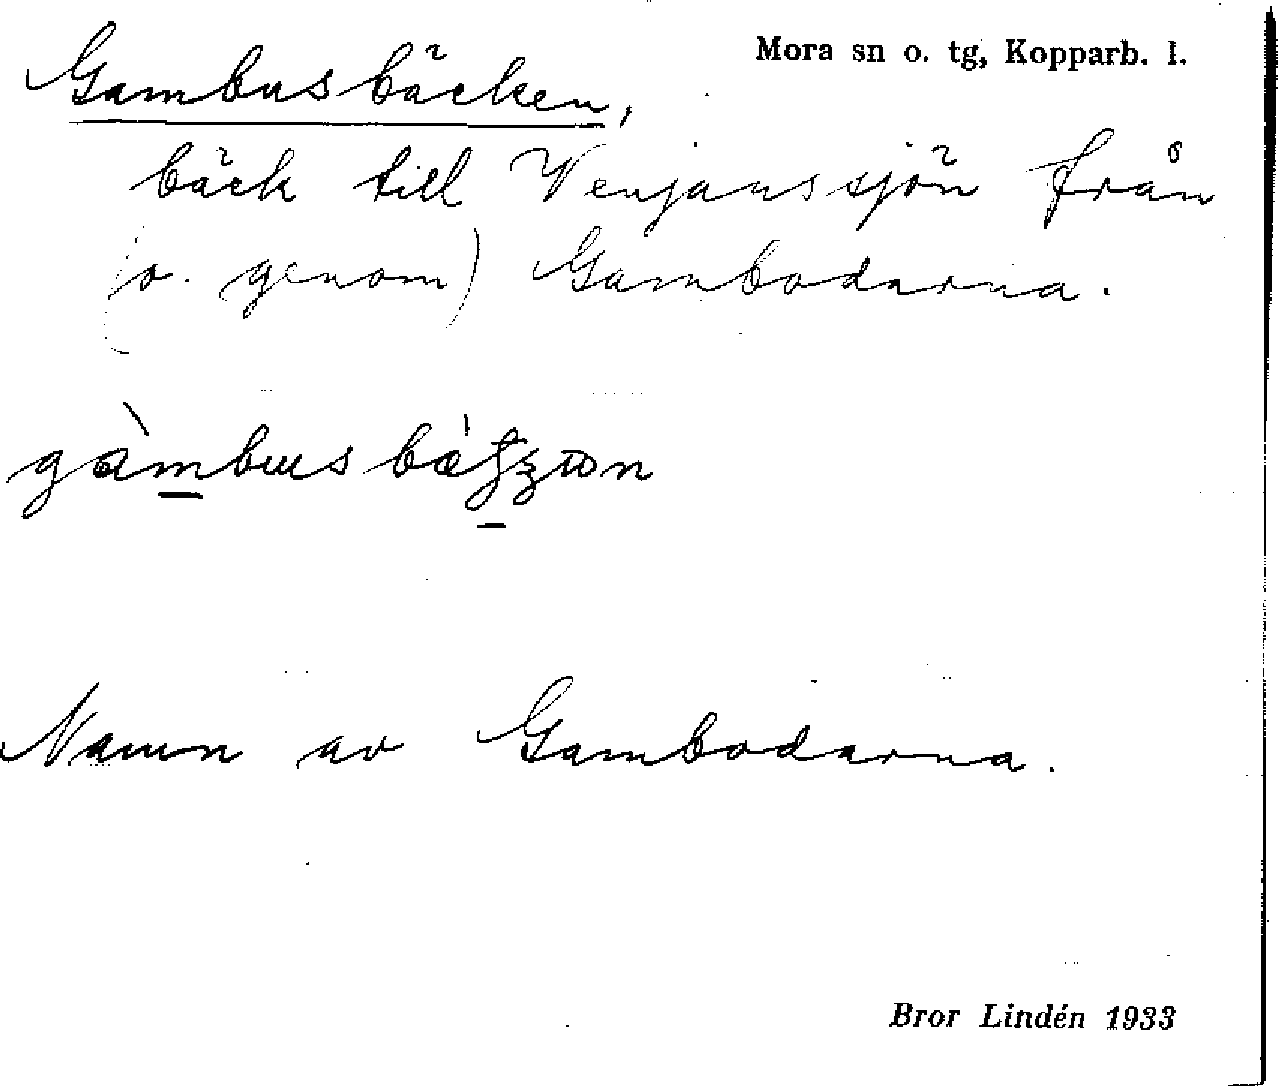 Mora sn o. tg, Kopparb. l.
Gambusbäcken,
bäck till Venjanssjön från
(o. genom) Gambodarna.
Namn av Gambodarna.
Bror Lindén 1933